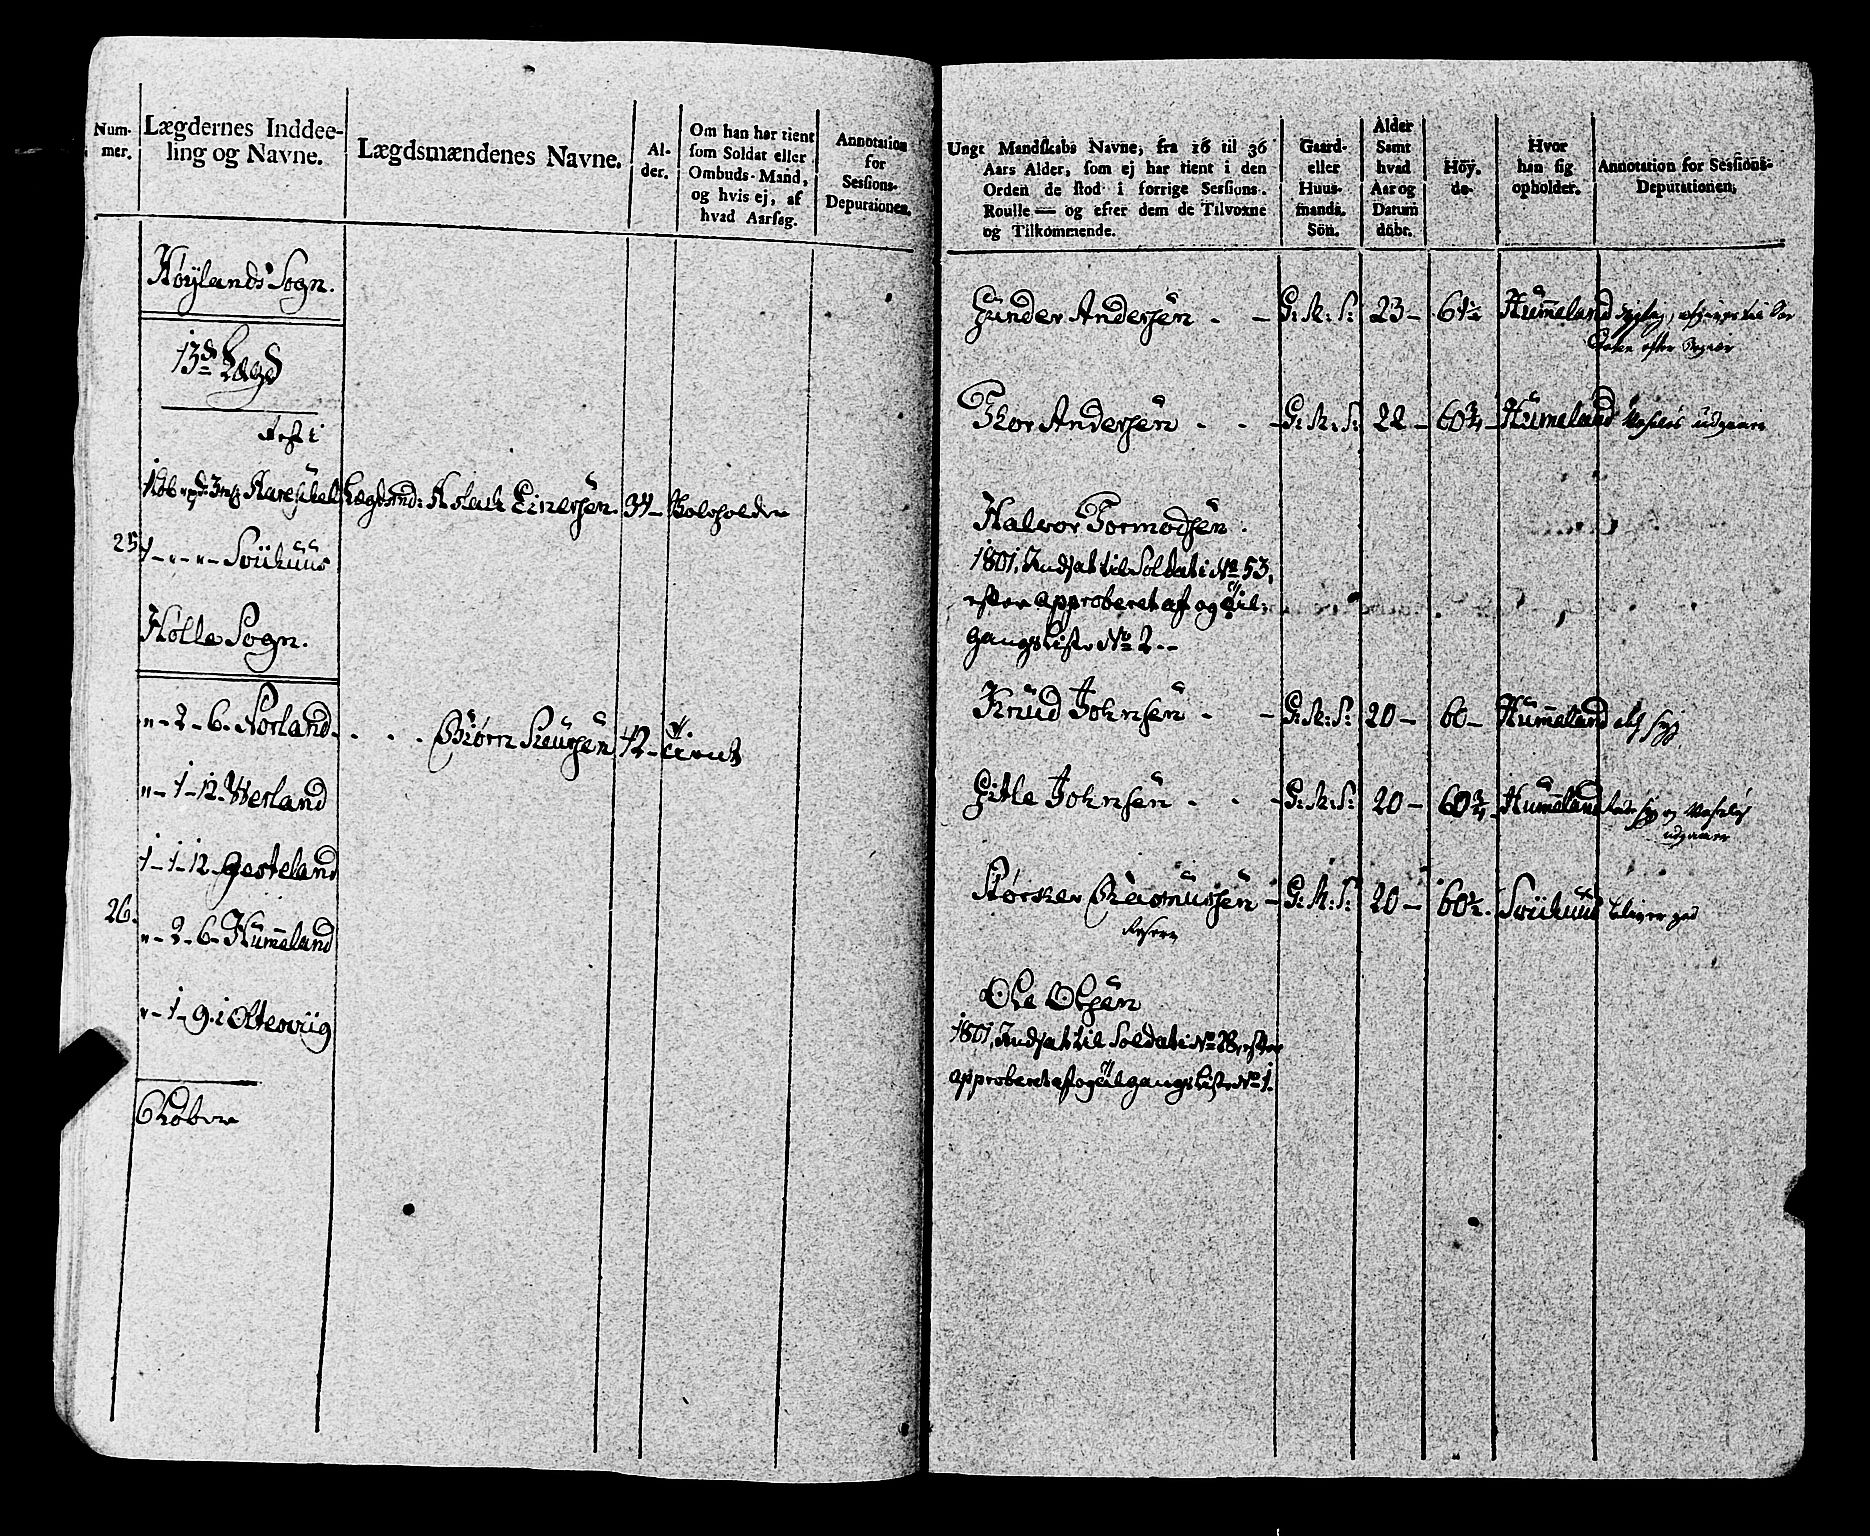 Num-
mer.
Lægdernes Inddee-
ling og Navne.
Lægdsmændenes Navne.
Al-
der.
Om han har tient
som Soldat eller
Ombuds-Mand,
og hvis ej, af
hvad Aarsag.
Annotation
for
Sessions-
Deputationen.
Høylands Sogn.
13de Lægd
Rest i
Aareskel Lægdsmd: Aslach Einersen. 34
25
1 - " - " - Sviihuus
Hølle Sogn.
" - 2 - 6 - Norland Biørn Siursen 42 - tient
" - 1 - 12 Werland
1 - 1 - 12 - Gesteland
26.
" - 2 - 6 - Hummeland
" - 1 - 9. i Oltesviig
6 Løber
Ungt Mandskabs Navne, fra 16 til 36
Aars Alder, som ej har tient i den
Orden de stod i forrige Sessions-
Roulle — og efter dem de Tilvoxne
og Tilkommende.
Gaard-
eller
Huus-
mands.
Søn.
Alder
Samt
hvad
Aar og
Datum
døbt.
Höy.
de.
Hvor
han sig
opholder.
Annotation for Sessions-
Deputationen.
Gunder Andersen - G: M: S: 23 - 61½ Hummeland
Thor Andersen - - G: M: S: 22 - 60¾ - Hummeland udgaaer
Halvor Tormodsen.
1801, Indsat til Soldat i No 53,
efter approberet af og til-
gangs Liste No 2.
Knud Johnsen - - G: M: S: 20 - 60 - Hummeland
Gitle Johnsen - - G: M: S: 20 - 60¾ - Hummeland
udgaaer
Størker Rasmussen - G: M: S: 20 - 60½. Sviihuus
Reserve
Ole Olsen
1801, Indsat til Soldat i No 28, efter
approberet af og til gangs Liste No 1.